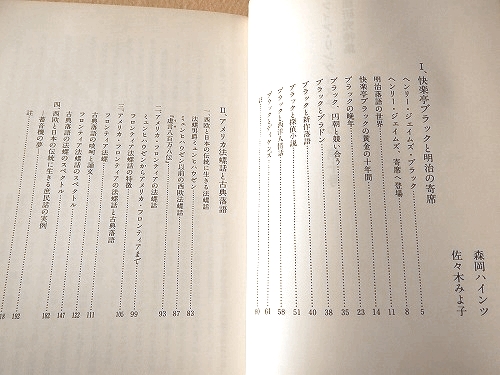 I、快楽亭ブラックと明治の寄席
森岡ハインツ
佐々木みよ子
ヘンリー・ジェイムズ・ブラック 5
ヘンリー・ジェイムズ、寄席へ登場 8
明治落語の世界 11
快楽亭ブラックの黄金の十年間 14
ブラックの晩年 23
ブラック、円朝と競い合う 35
ブラックとブラウドン 38
ブラックと新作落語 40
ブラックと探偵小説 51
ブラックと西洋人情話 58
ブラックとディケンズ 61
註 80
II、アメリカ法螺話と古典落語
一、西欧と日本の伝統に生きる法螺話 83
法螺男爵ミュンヒハウゼン 87
ミュンヒハウゼン以前の西欧法螺話
二、アメリカ・フロンティアの法螺話 93
ミュンヒハウゼンからアメリカ・フロンティアまで
フロンティア法螺話の特徴 99
三、アメリカ・フロンティアの法螺話と古典落語 105
古典落語の
フロンティア法螺話のスペクトル 122
古典落語の法螺のスペクトル 147
四、西欧と日本の伝統に生きる庶民話の実例 182
註 192